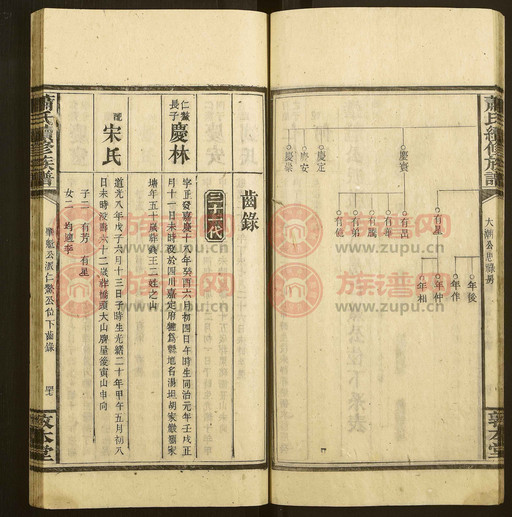 蕭氏續修族譜
大瀚公忠聯房
敦本堂
慶賚
慶定
慶安
慶榮
有星
有昌
有年
有歲
有弟
有德
年後
年作
年仲
年相
齒錄
三十一代
仁鰲長子
慶林
字正發嘉慶十八年癸酉六月初四日午時生同治元年壬戌正
月十一日未時歿於四川嘉定府犍爲縣地名湯垻胡家墩劉家
塘年五十歲葬蔣王二姓之山
配
宋氏
道光八年戊子六月十三日子時生光緒二十年甲午五月初八
日未時歿壽六十二歲葬橋頭大山牌星後寅山申向
子二 有芳 有星
女二 均適李
蕭氏續修族譜
畢魁公派仁鰲公位下齒錄
敦本堂
族谱网
www.zupu.cn